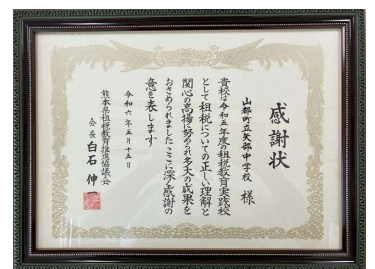 感謝状
山都町立矢部中学校 様
貴校は令和五年度の租税教育実践校
として租税についての正しい理解と
関心の高揚に努められ多大の成果を
おさめられましたここに深く感謝の
意を表します
令和六年五月十五日
熊本県租税教育推進協議会
会長 白石 伸一